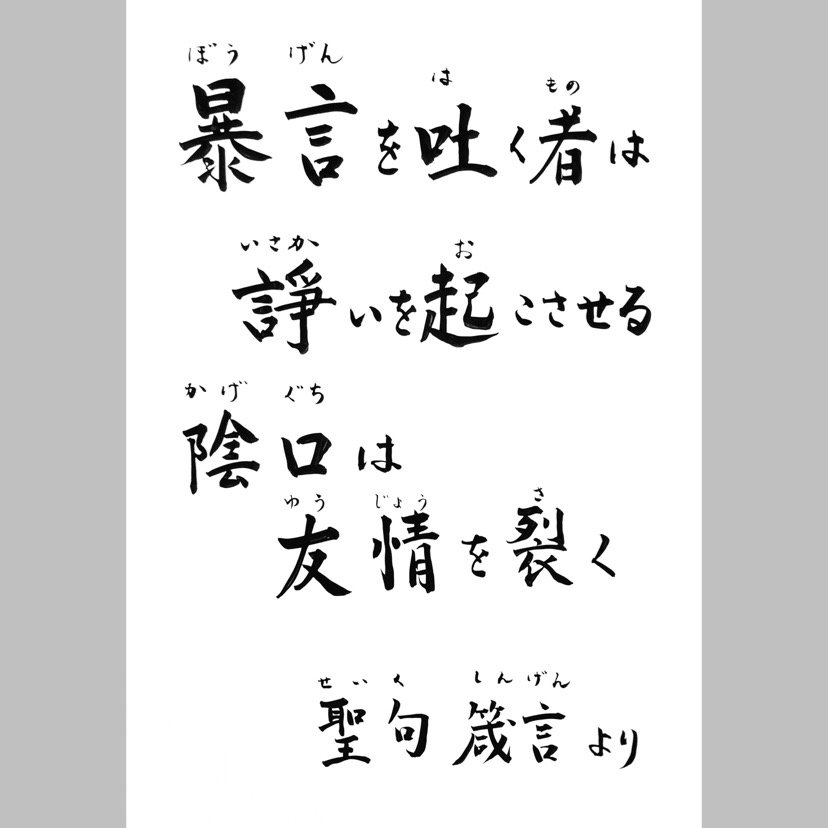 ぼうげん は もの
暴言を吐く者は
いさか お
諍いを起こさせる
かげぐち
陰口は
ゆうじょう さ
友情を裂く
せいく しんげん
聖句 箴言より